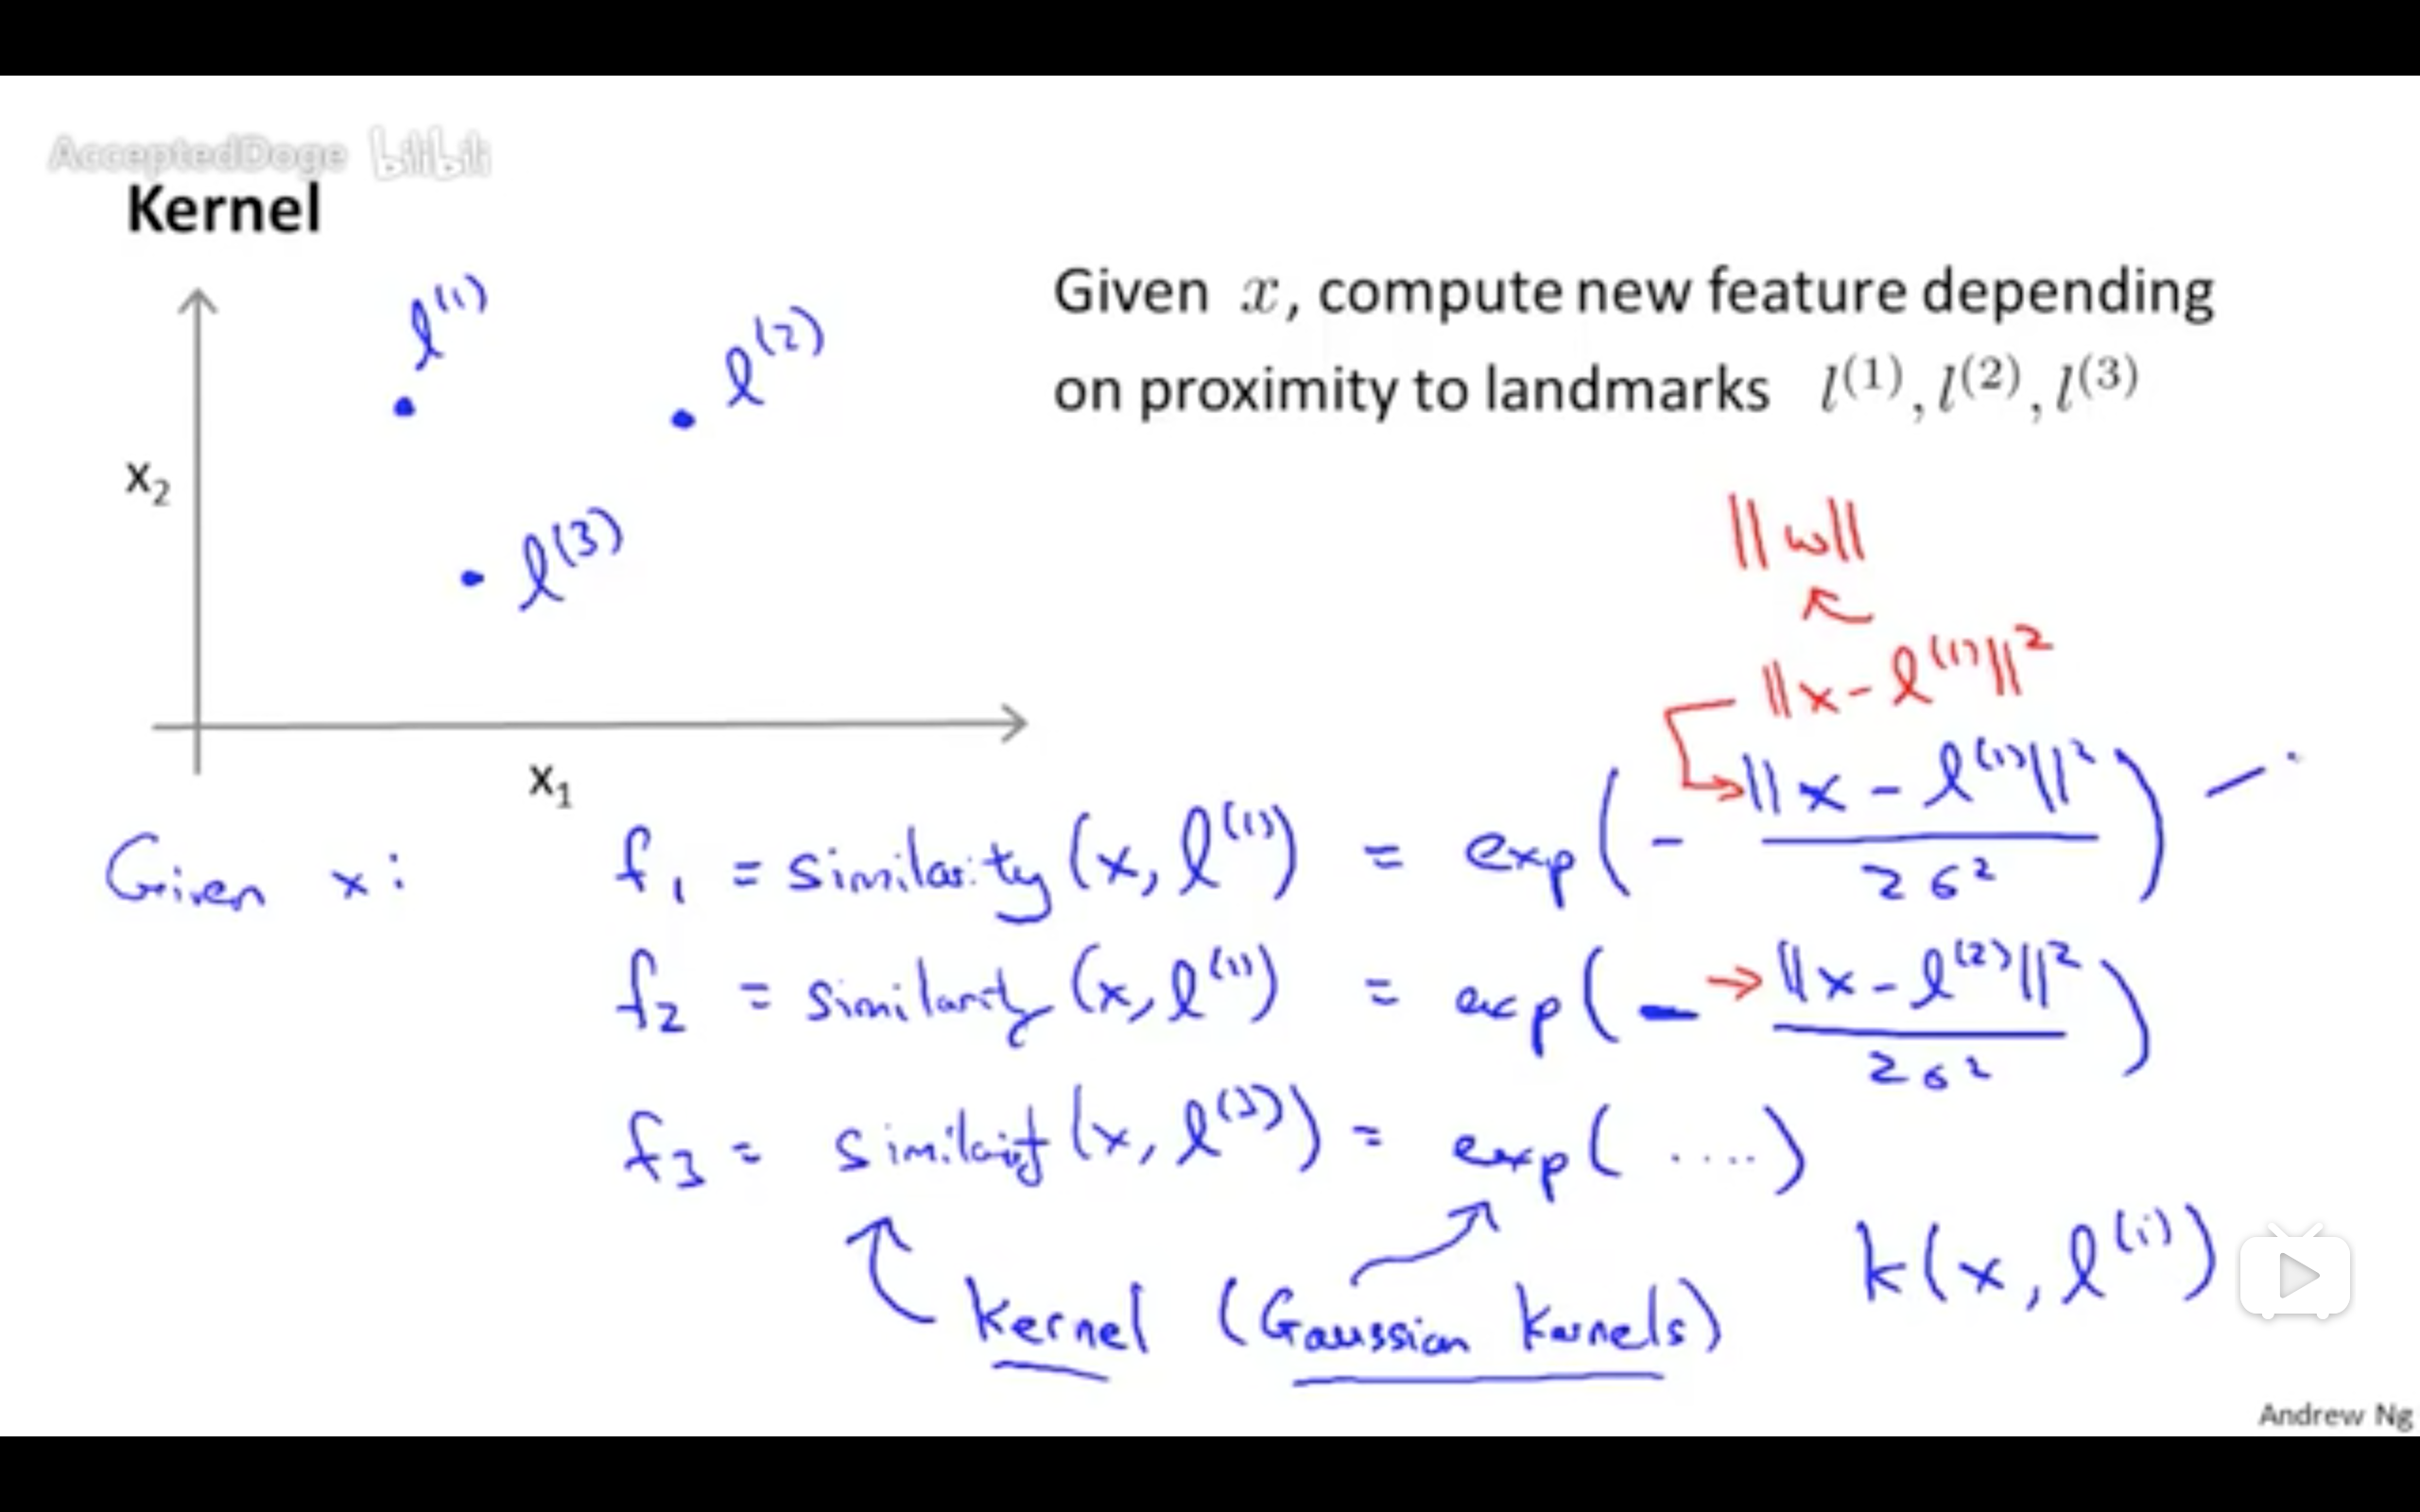 AcceptedDoge bilibili
Kernel
l⁽¹⁾
l⁽²⁾
l⁽³⁾
x₂
x₁
Given x, compute new feature depending
on proximity to landmarks l⁽¹⁾, l⁽²⁾, l⁽³⁾
||w||
||x - l⁽¹⁾||²
Given x: f₁ = similarity(x, l⁽¹⁾) = exp(- ||x - l⁽¹⁾||² / 2σ²)
f₂ = similarity(x, l⁽¹⁾) = exp(- ||x - l⁽²⁾||² / 2σ²)
f₃ = similarity(x, l⁽³⁾) = exp(....)
kernel (Gaussian kernels) k(x, l⁽ⁱ⁾)
Andrew Ng